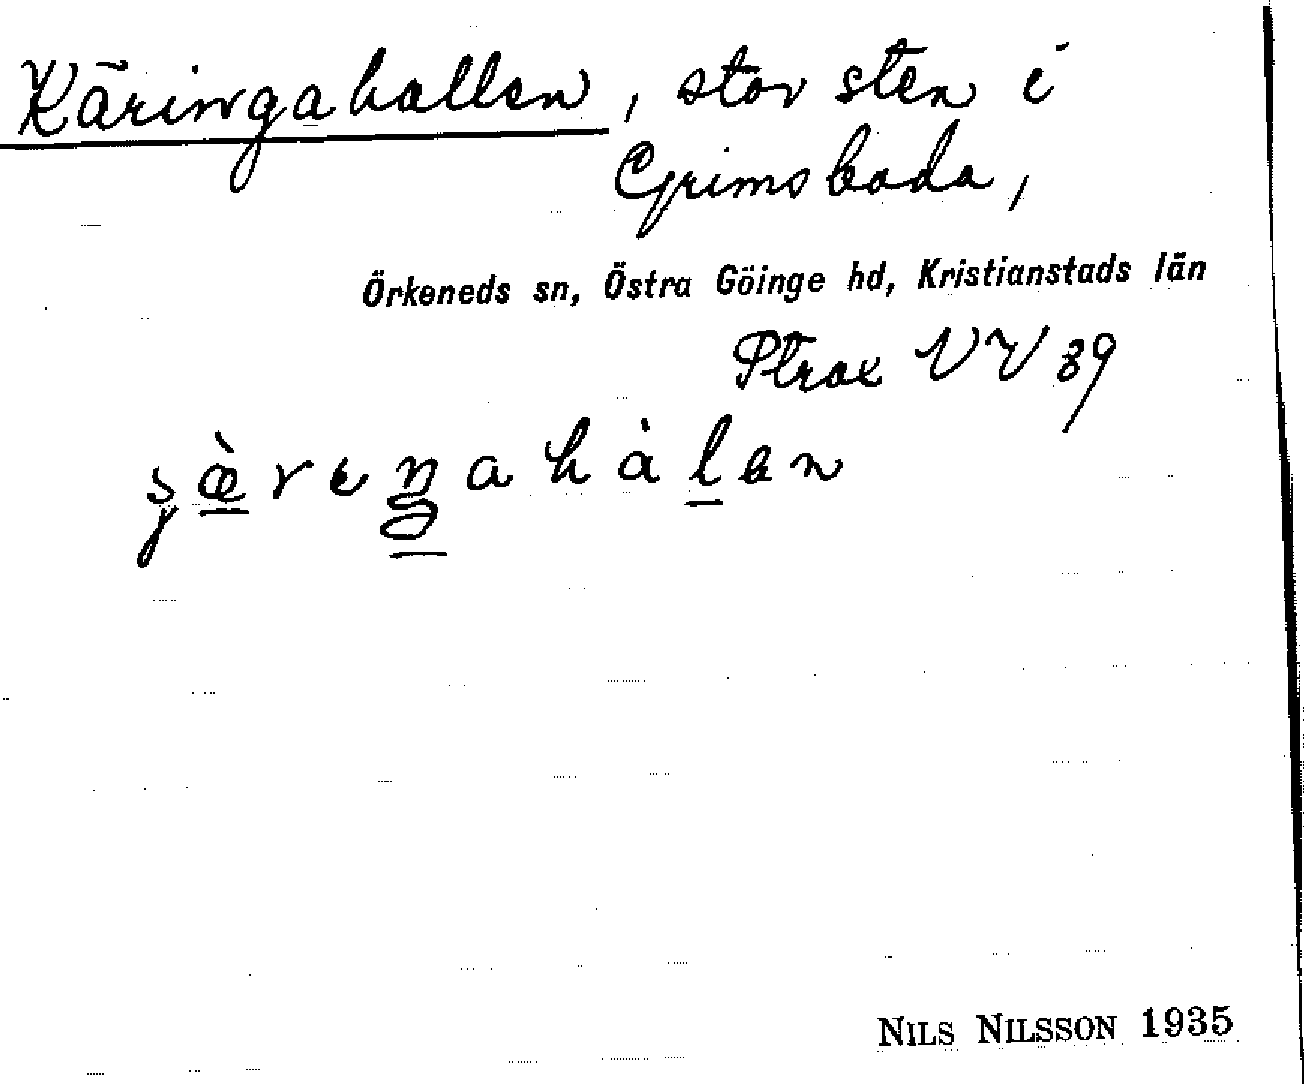 Käringahallen, stor sten i
Grimsboda,
Örkeneds sn, Östra Göinge hd, Kristianstads län
Ptrax VV 89
NILS NILSSON 1935